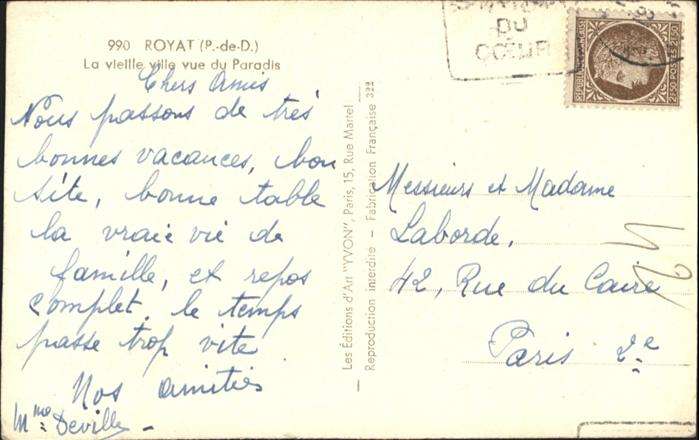 990 ROYAT (P.-de-D.)
La vieille ville vue du Paradis
Chers Amis
Nous passons de très
bonnes vacances, bon
site, bonne table
la vraie vie de
famille, et repos
complet. le temps
passe trop vite
Nos amitiés
Mme Deville -
Les Editions d'Art "YVON", Paris, 15, Rue Martel
Reproduction interdite - Fabrication Française
DU
CŒUR
Messieurs et Madame
Laborde,
42, Rue du Caire
Paris 2e